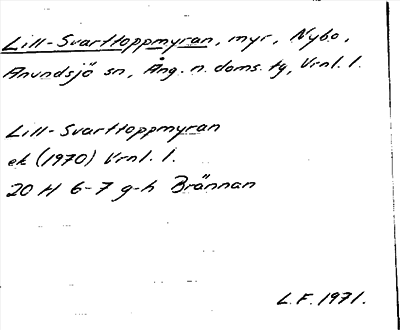 Lill-Svarttoppmyran, myr, Nybo,
Anundsjö sn, Ång. n. doms. tg, Vrnl. l.
Lill-Svarttoppmyran
ek (1970) Vrnl. l.
20 H 6-7 g-h Brännan
L.F. 1971.